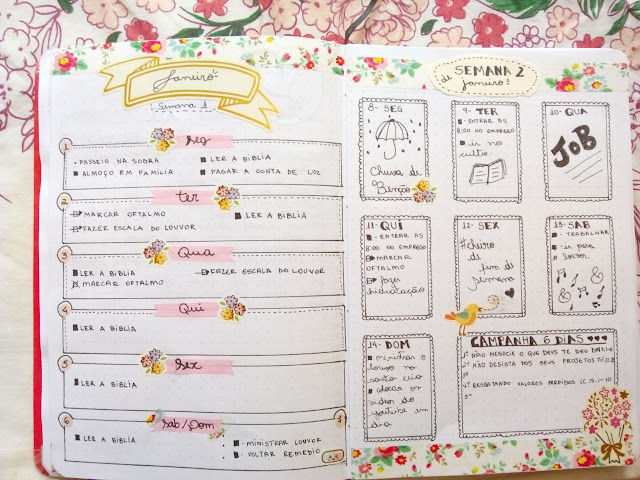 Janeiro
Semana 1
1
Seg
• PASSEIO NA SOGRA
■ LER A BÍBLIA
■ ALMOÇO EM FAMÍLIA
■ PAGAR A CONTA DE LUZ
2
ter
MARCAR OFTALMO
■ LER A BÍBLIA
FAZER ESCALA DO LOUVOR
3
Qua
■ LER A BÍBLIA
FAZER ESCALA DO LOUVOR
MARCAR OFTALMO
4
Qui
■ LER A BÍBLIA
5
Sex
■ LER A BÍBLIA
6
Sab/Dom
7
■ LER A BÍBLIA
■ - MINISTRAR LOUVOR
■ - VOLTAR REMEDIO
de SEMANA 2
janeiro
8- SEG
Chuva de
Benção
9- TER
■ - ENTRAR AS
8:00 NO EMPREGO
■ ir no
culto
10- QUA
JOB
11- QUI
■ - ENTRAR AS
8:00 NO EMPREGO
MARCAR
OFTALMO
fazer
hidratação
12- SEX
#cheiro
de
fim de
semana
13- SAB
■ - TRABALHAR
■ - ir para
o
14- DOM
■ ministrar o
louvor na
santa ceia
■ colocar os
videos do
youtube em
dia
CAMPANHA 6 DIAS ♥♥♥
1° NÃO NEGOCIE O QUE DEUS TE DEU
2° NÃO DESISTA DOS SEUS PROJETOS
3°
4° RESGATANDO VALORES PERDIDOS LC 15.1-10
5°